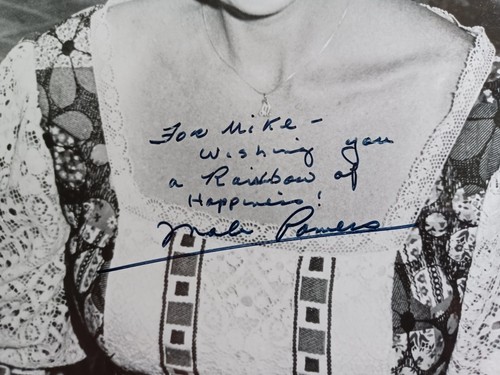 For Mike -
Wishing you
a Rainbow of
Happiness!
Mala Powers